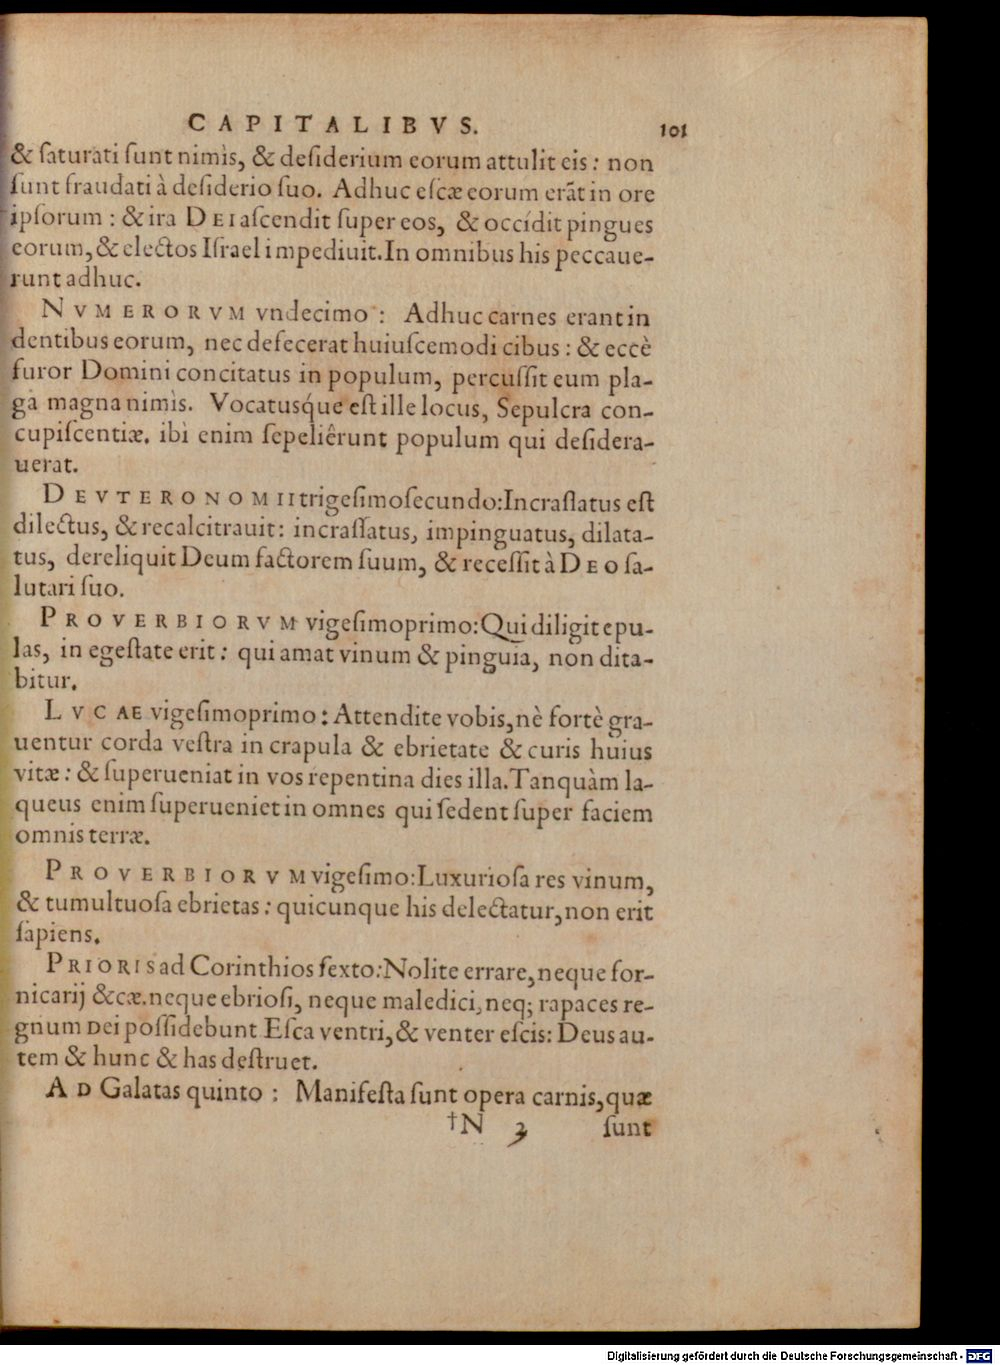 CAPITALIBVS. 101
& ſaturati ſunt nimìs, & deſiderium eorum attulit eis: non
ſunt fraudati à deſiderio ſuo. Adhuc eſcæ eorum erãt in ore
ipſorum: & ira DEI aſcendit ſuper eos, & occídit pingues
eorum, & electos Iſrael impediuit. In omnibus his peccaue-
runt adhuc.
NVMERORVM vndecimo: Adhuc carnes erant in
dentibus eorum, nec defecerat huiuſcemodi cibus: & eccè
furor Domini concitatus in populum, percuſſit eum pla-
ga magna nimìs. Vocatusq́ue eſt ille locus, Sepulcra con-
cupiſcentiæ. ibì enim ſepeliêrunt populum qui deſidera-
uerat.
DEVTERONOMII trigeſimoſecundo: Incraſſatus eſt
dilectus, & recalcitrauit: incraſſatus, impinguatus, dilata-
tus, dereliquit Deum factorem ſuum, & receſſit à DEO ſa-
lutari ſuo.
PROVERBIORVM vigeſimoprimo: Qui diligit epu-
las, in egeſtate erit: qui amat vinum & pinguia, non dita-
bitur.
LVCAE vigeſimoprimo: Attendite vobis, nè fortè gra-
uentur corda veſtra in crapula & ebrietate & curis huius
vitæ: & ſuperueniat in vos repentina dies illa. Tanquàm la-
queus enim ſuperueniet in omnes qui ſedent ſuper faciem
omnis terræ.
PROVERBIORVM vigeſimo: Luxurioſa res vinum,
& tumultuoſa ebrietas: quicunque his delectatur, non erit
ſapiens.
PRIORIS ad Corinthios ſexto: Nolite errare, neque for-
nicarij &cæ. neque ebrioſi, neque maledici, neq; rapaces re-
gnum DEI poſſidebunt Eſca ventri, & venter eſcis: Deus au-
tem & hunc & has deſtruet.
AD Galatas quinto: Manifeſta ſunt opera carnis, quæ
†N 3 ſunt
Digitalisierung gefördert durch die Deutsche Forschungsgemeinschaft - DFG